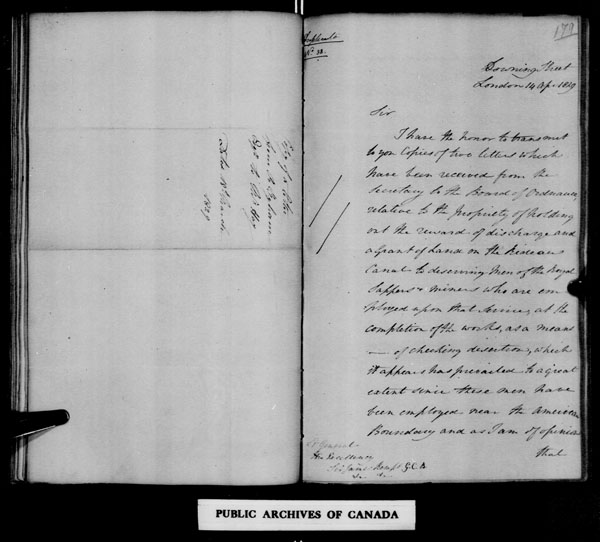 Duplicate
No. 38.
179
Downing Street
London 14 Apr 1829
Sir
I have the honor to transmit
to you Copies of two letters which
have been received from the
Secretary to the Board of Ordnance,
relative to the propriety of holding
out the reward of discharge and
a Grant of Lands on the Rideau
Canal to deserving men of the Royal
Sappers & Miners who are em
ployed upon that Service, at the
completion of the works, as a means
— of checking desertion, which
it appears has prevailed to a great
extent since these men have
been employed near the American
Boundary and as I am of opinion
that
Lt General
His Excellency
Sir James Kempt G.C.B.
1829
PUBLIC ARCHIVES OF CANADA